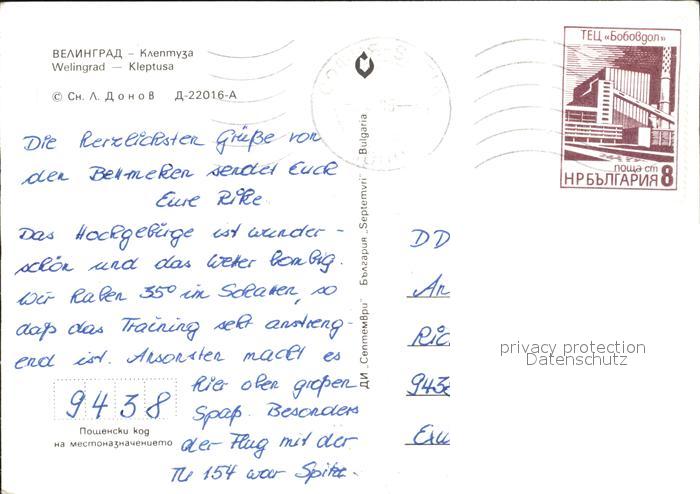 ВЕЛИНГРАД – Клептуза
Welingrad — Kleptusa
© Сн. Л. Донов Д-22016-А
ТЕЦ „Бобовдол"
поща ст
НРБЪЛГАРИЯ 8
Die herzlichsten Grüße von
den Belmeken sendet Euch
Eure Rike
Das Hochgebirge ist wunder-
schön und das Wetter bombig.
Wir haben 35° im Schatten, so
daß das Training sehr anstreng-
end ist. Ansonsten macht es
hier oben großen
Spaß. Besonders
der Flug mit der
TU 154 war Spitze.
9438
Пощенски код
на местоназначението
ДИ „Септември" България „Septemvri" Bulgaria
DD
An
943
privacy protection
Datenschutz